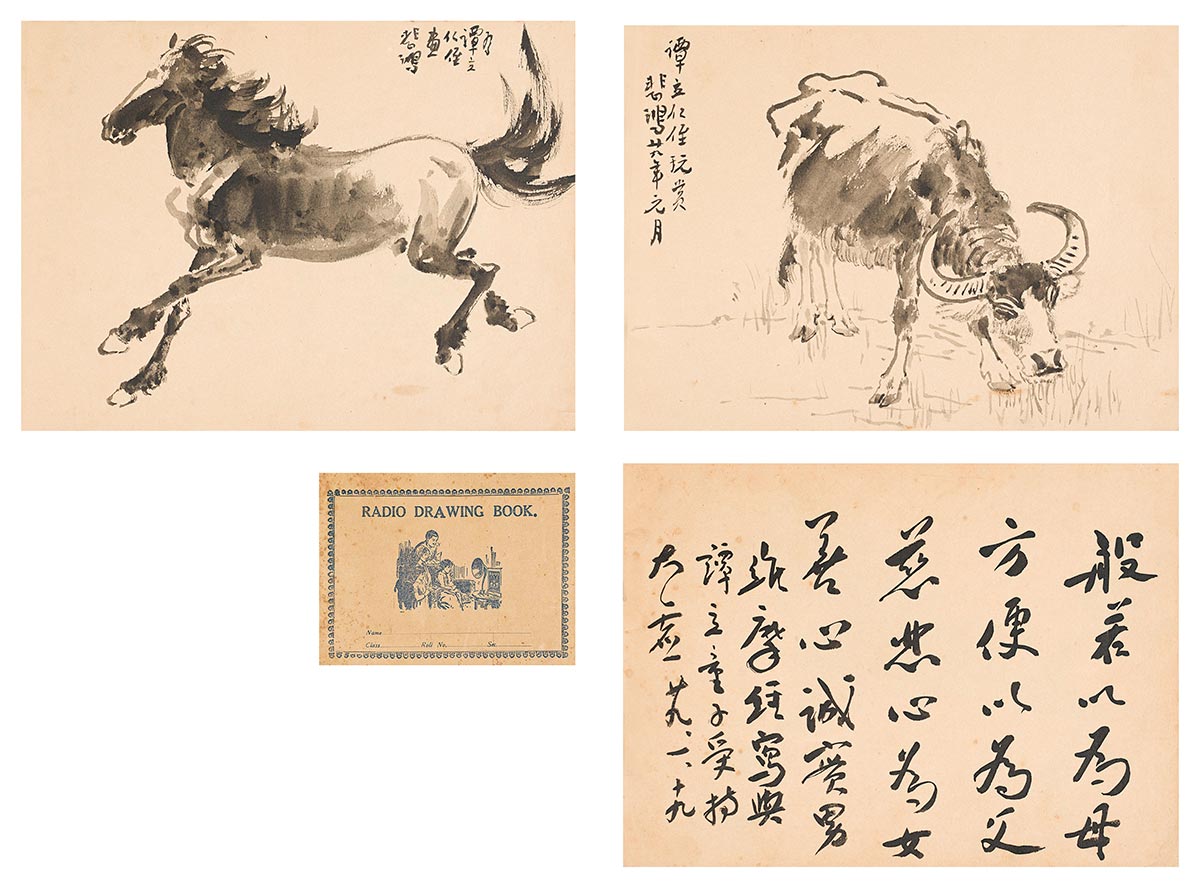 为
譚立
仁侄
画
悲鴻
譚立仁侄玩赏
悲鴻廿八年元月
RADIO DRAWING BOOK.
Name
Class Roll No. Sec.
般若以為母
方便以為父
慈悲心為女
善心誠實男
維摩経寫與
譚立童子受持
太虚 廿九、一、十九